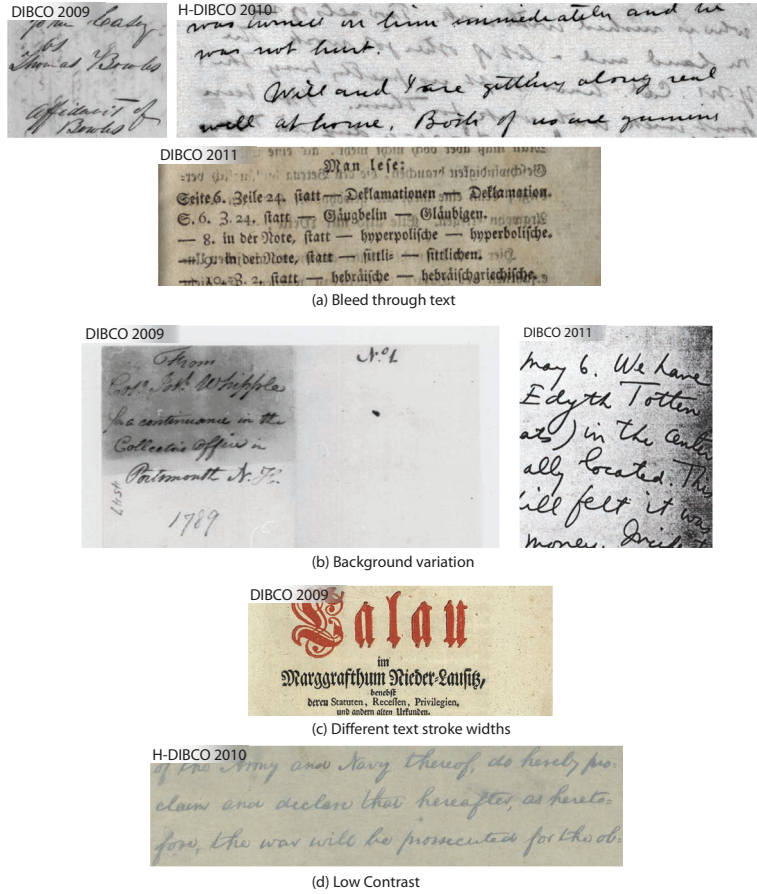 DIBCO 2009
John Casey
bs
Thomas Bowles
Affidavit of
Bowles
H-DIBCO 2010
was turned on him immediately and he
was not hurt.
Will and I are getting along real
well at home. Both of us are gunning
DIBCO 2011
Man lese:
Seite 6. Zeile 24. statt — Deklamationen — Deklamation.
S. 6. Z. 24. statt — Gäugbelin — Gläubigen.
— 8. in der Note, statt — hyperpolische — hyperbolische.
— 9. in der Note, statt — sittli- — sittlichen.
— 10. Z. 2. statt — hebräische — hebräischgriechische.
(a) Bleed through text
DIBCO 2009
From
Colo. Jos. Whipple
for a continuance in the
Collectors Office in
Portsmouth N. H.
1789
No. 1
DIBCO 2011
may 6. We have
Edyth Totten
ats) in the center
ally located. This
ill felt it was
money. Incid
(b) Background variation
DIBCO 2009
Calau
im
Marggrafthum Nieder-Lausitz,
benebst
deren Statuten, Recessen, Privilegien,
und andern alten Urkunden.
(c) Different text stroke widths
H-DIBCO 2010
of the Army and Navy thereof, do hereby pro-
claim and declare that hereafter, as hereto=
fore, the war will be prosecuted for the ob-
(d) Low Contrast